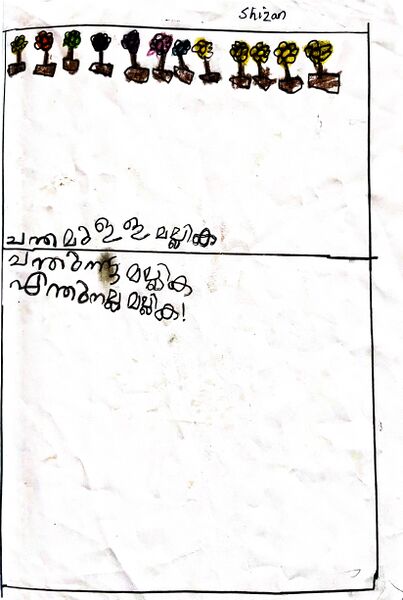 Shizan
ചന്തമുള്ള മല്ലിക
ചന്തുന്റെ മല്ലിക
എന്തുനല്ല മല്ലിക!